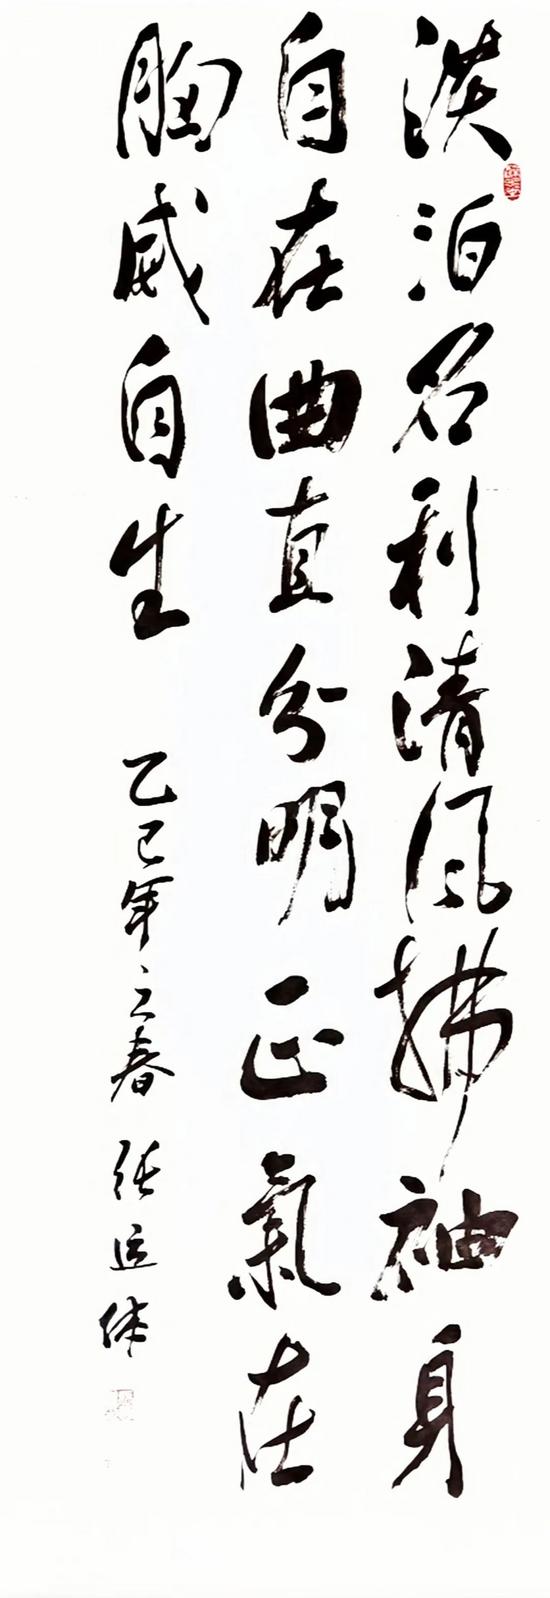 淡泊名利清风拂袖身
自在曲直分明正氣在
胸威自生
乙巳年立春 张运体